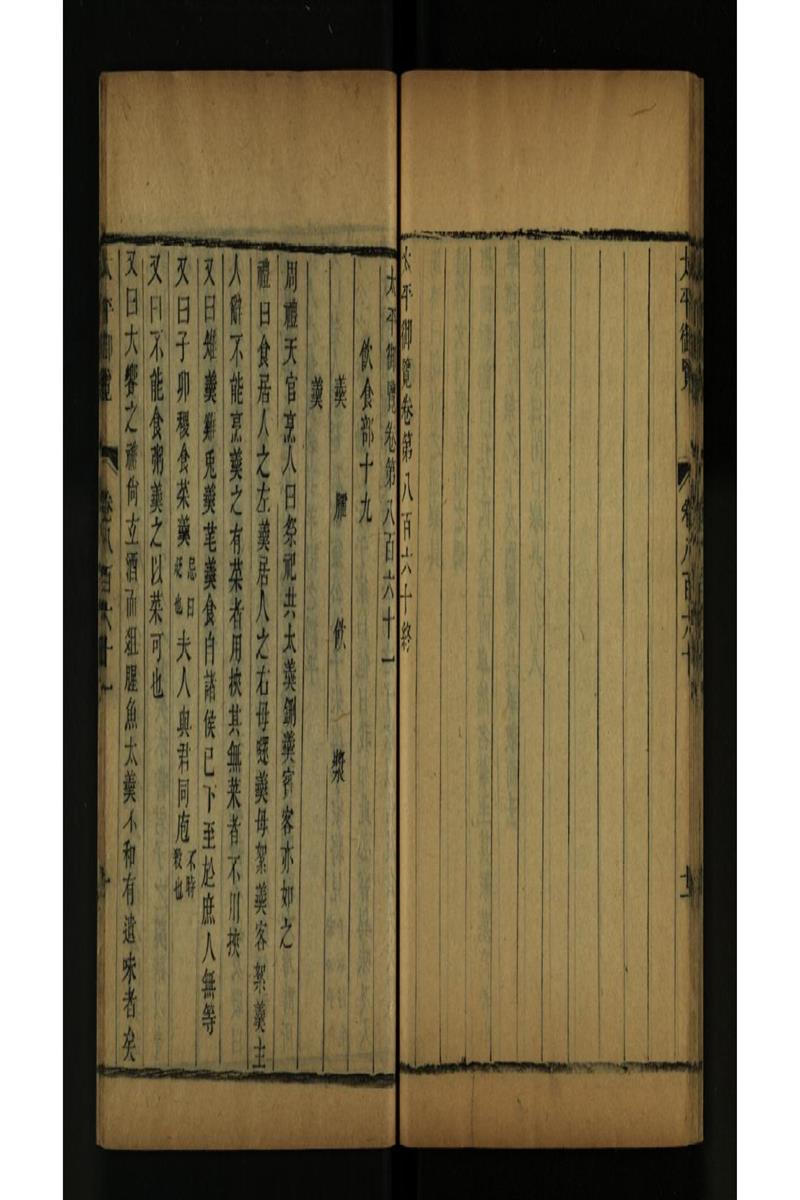 太平御覽
卷八百六十
十二
太平御覽卷第八百六十終
太平御覽卷第八百六十一
飲食部十九
羹 臛 飲 漿
羹
周禮天官烹人曰祭祀共太羹鉶羹賓客亦如之
禮曰食居人之左羹居人之右毋嚃羹毋絮羹客絮羹主
人辭不能烹羹之有菜者用挾其無菜者不用挾
又曰雉羹雞兎羹芼羹食自諸侯已下至於庶人無等
又曰子卯稷食菜羹忌日貶也夫人與君同庖不時殺也
又曰不能食粥羹之以菜可也
又曰大饗之禮尙玄酒而俎腥魚太羹不和有遺味者矣
太平御覽
卷八百六十一
一